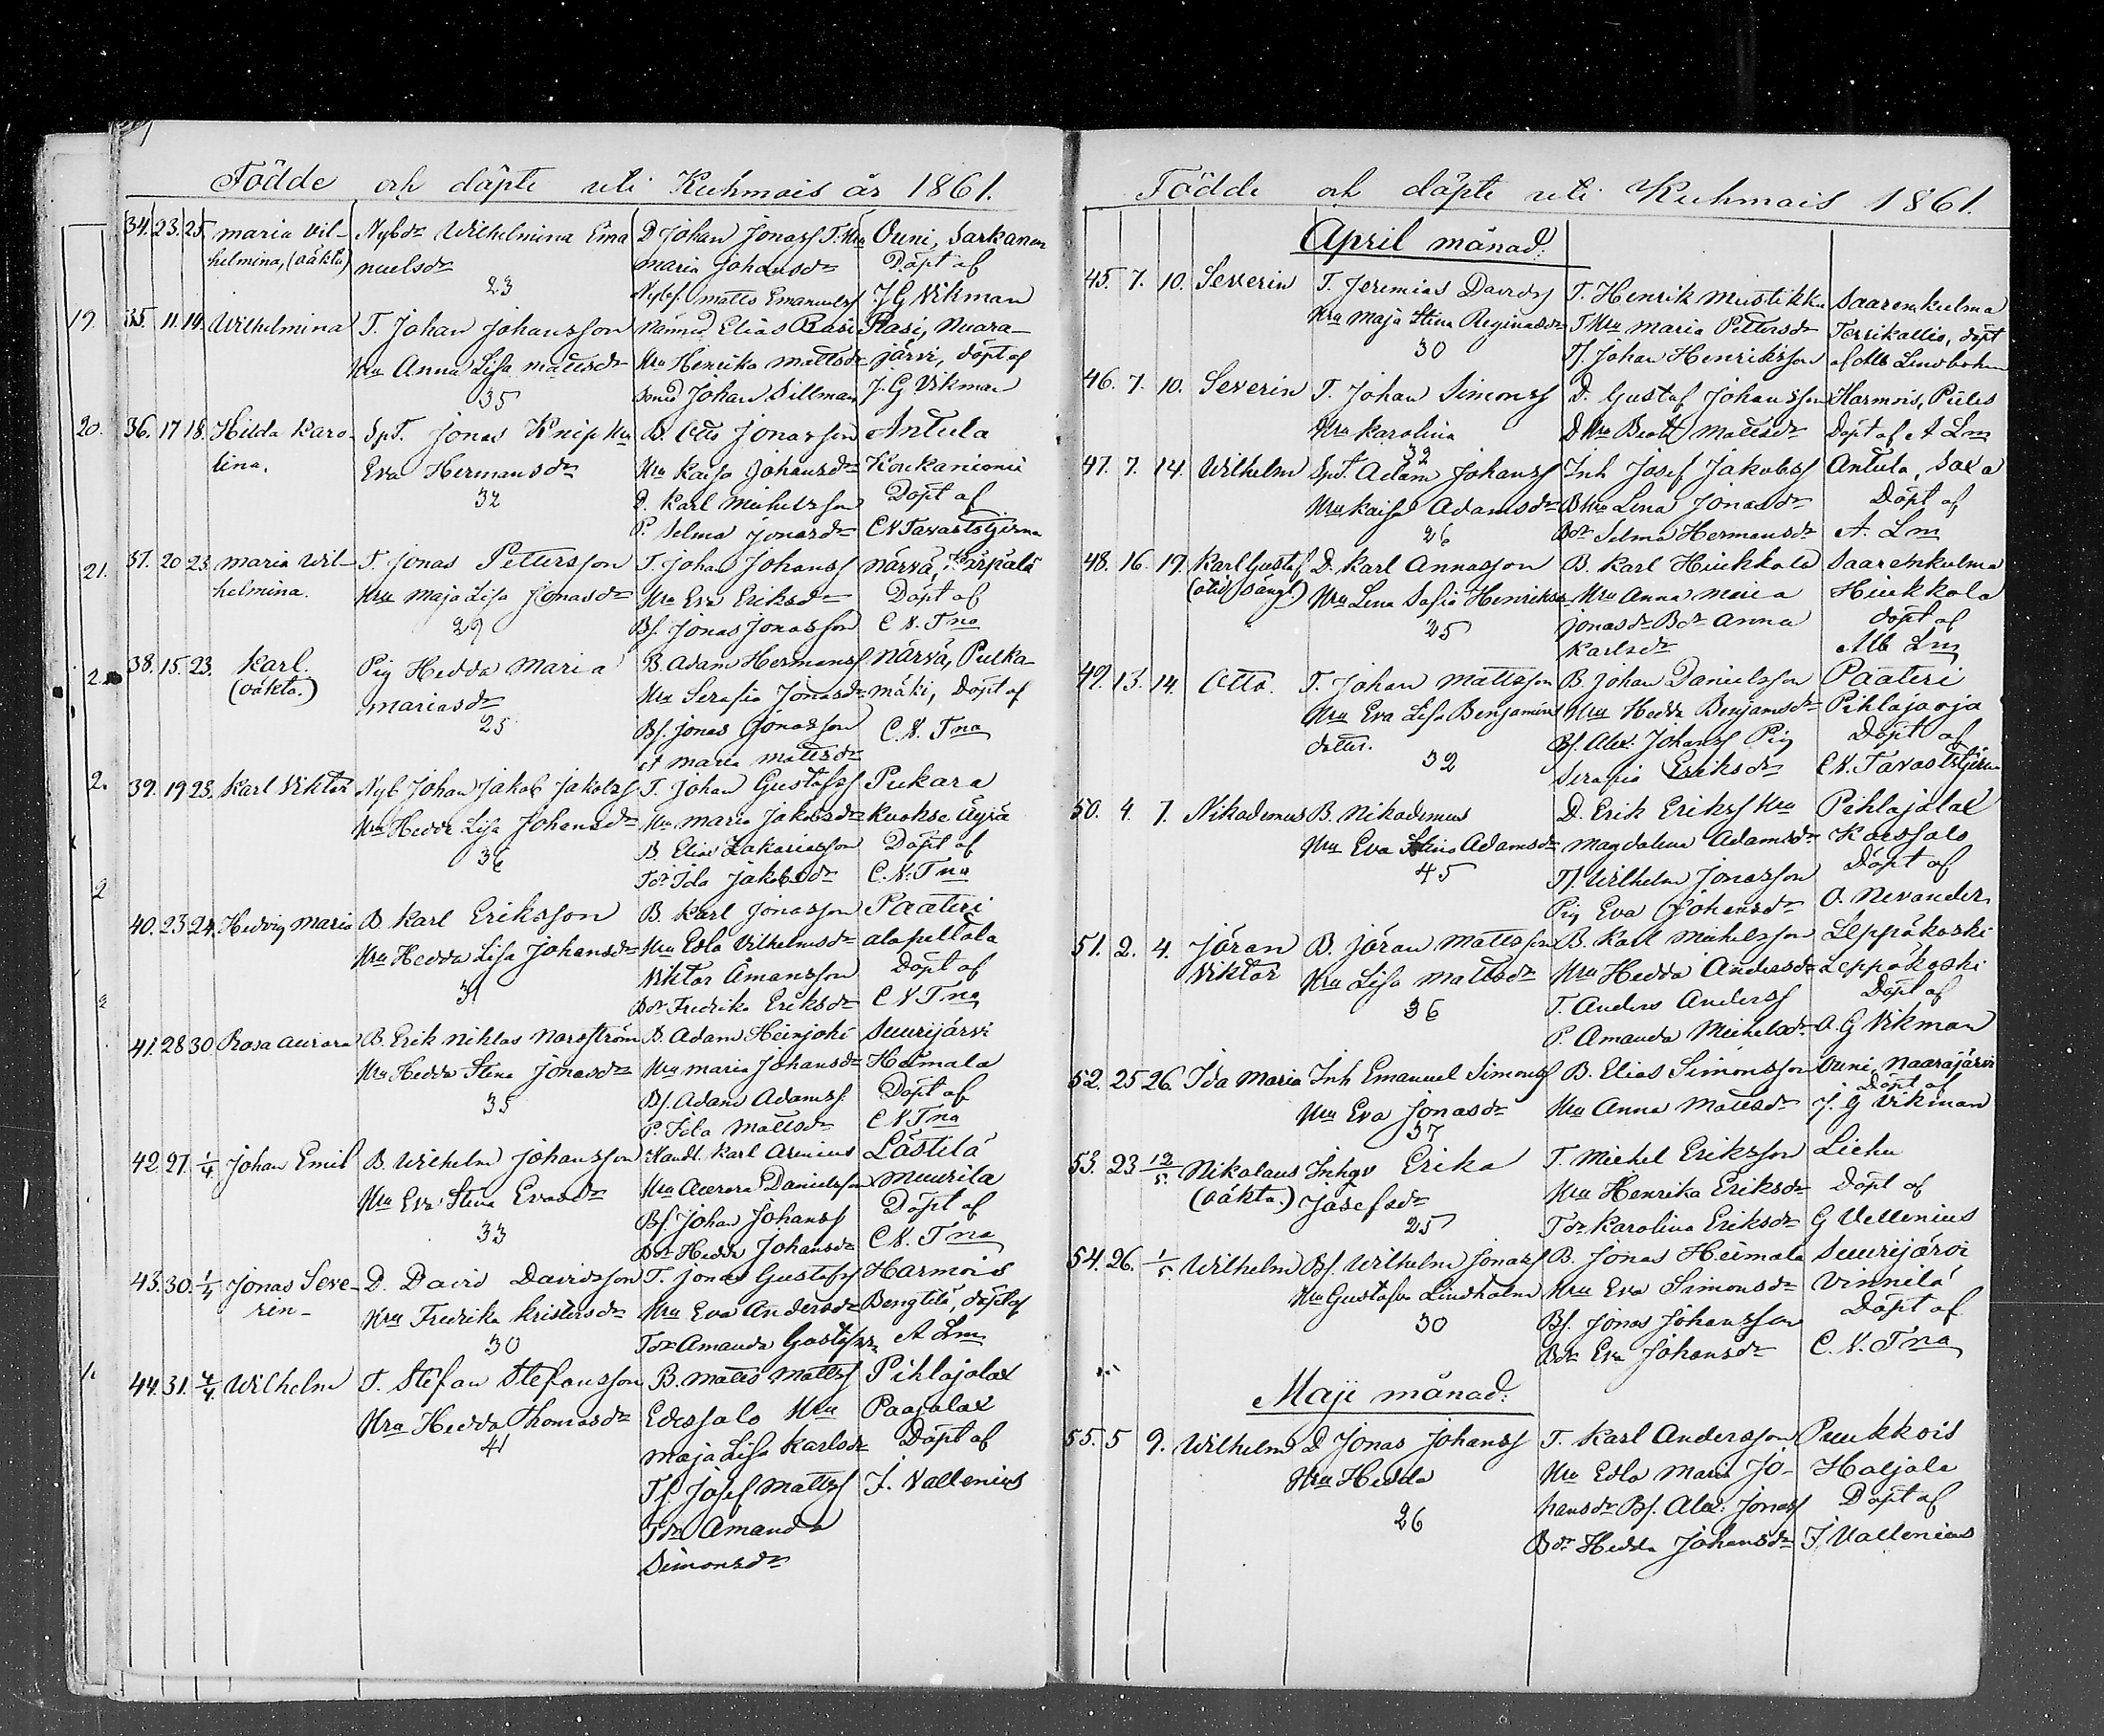 Födde och döpte uti Kuhmois år 1861.
34. 23. 25. maria Vil- Nybdr Wilhelmina Ema D Johan Jonass T. Hru Ouni, Sarkanen
helmina, (oäkta) nuelsdr maria Johansdr Döpt af
23 Nybs. matts Emanuelss J G Vikman
35. 11. 14. Wilhelmina T. Johan Johansson Nämnd Elias Rasi Rasi, Nuara-
Hru Anna Lisa mattsdr Hru Henrika mattsdr järvi, döpt af
35 Johan Sillman J. G Vikman
36. 17 18. Hilda Karo- SpT. Jonas Knip Hru B. Otto Jonasson Antula
lina. Eva Hermansdr Hru Kaisa Johansdr Koukaniemi
32 D. Karl Michelsson Döpt af
P. Selma Jonasdr C N Tavaststjerna
37. 20 23. maria Wil- T. Jonas Pettersson T. Johan Johanss närvä, Kärpälä
helmina. Hru Maja Lisa Jonasdr Hru Eva Eriksdr Döpt af
29 Bs. Jonas Jonasson C N. Tna
38. 15. 23. Karl. Pig Hedda Maria B. Adam Hermanss Närvä, Pulka-
(oäkta.) mariasdr Hru Serafia Jonasdr mäki, Döpt af
25 Bs. Jonas Jonasson C. N. Tna
et maria mattsdr
39. 19 23. Karl Viktor Nyb Johan Jakob Jakobss T. Johan Gustafss Pukara
Hru Hedda Lisa Johansdr Hru maria Jakobsdr Kuokse äyrä
36 B. Elias Zakariasson Döpt af
Tdr Ida Jakobsdr C. N. Tna
40. 23 24. Hedvig Maria B Karl Eriksson B. Karl Jonasson Paateri
Hru Hedda Lisa Johansdr Hru Edla Vilhelmsdr alapeltola
31 Viktor Åmansson Döpt af
Bdr Fredrika Eriksdr C N Tna
41. 28 30 Rosa aurora B. Erik Niklas Norrström B. Adam Heinjoki Suurijärvi
Hru Hedda Stina Jonasdr Hru maria Johansdr Heimala
35 Bs. Adam Adamss Döpt af
P. Ida Mattsdr C N Tna
42 27. 1/4 Johan Emil B. Wilhelm Johansson Handl. Karl Arenius Lästilä
Hru Eva Stina Evasdr Hru Aurora Danielsson Muurila
33 Bs. Johan Johanss Döpt af
Bdr Hedda Johansdr C N. Tna
43. 30. 1/4 Jonas Seve- D. David Davidsson T. Jonas Gustafss Harmois
rin- Hru Fredrika Kristersdr Hru Eva Andersdr Bengtilä, döpt af
30 Tdr Amanda Gustafsdr A Lm
44. 31. 4/4 Wilhelm T. Stefan Stefansson B. Matts Mattss Pihlajalax
Hru Hedda Thomasdr Edessalo Hru Paajalax
41 Maja Lisa Karlsdr Döpt af
Ts. Josef Mattss J. Vallenius
Tdr Amanda
Simonsdr
19.
20.
21.
Födde och döpte uti Kuhmois 1861.
April månad.
45. 7. 10. Severin T. Jeremias Davidss T. Henrik Mustikka Saarenkulma
Hru Maja Stina Reginasdr T Hru Maria Pettersdr Terrikallio, döpt
30 Ts. Johan Henriksson af Alb Lindbohm
46. 7. 10. Severin T. Johan Simonss D. Gustaf Johansson Harmois, Piiles
Hru Karolina D Hru Beata Mattsdr Döpt af A Lm
32
47. 7. 14. Wilhelm SpT. Adam Johanss Inh Josef Jakobss Antula, Saxa
Hru Kaisa Adamsdr B Hru Lena Jonasdr Döpt af
26 Bdr Selma Hermansdr A. Lm
48. 16. 17. Karl Gustaf D. Karl Annasson B. Karl Hiukkala Saarenkulma
Hru Lena Sofia Henriksdr Hru Anna Maria Hiukkola
25 Jonasdr Bdr Anna döpt af
Karlsdr Alb Lm
49. 13. 14. Otto. T. Johan Mattsson B Johan Danielsson Paateri
Hru Eva Lisa Benjamins Hru Hedda Benjamsdr Pihlajaoja
dotter. Bs. Alex. Johanss Pig Döpt af
32 Serafia Eriksdr C N. Tavaststjerna
50. 4 7. Nikodemus B. Nikodemus D. Erik Erikss Hru Pihlajalax
Hru Eva Stina Adamsdr Magdalena Adamsdr Kaessalo
45 Ts. Wilhelm Jonasson Döpt af
Pig Eva Johansdr O. Nevander
51. 2. 4. Jöran B. Jöran Mattsson B. Karl Michelsson Leppäkoski
Viktor Hru Lisa Mattsdr Hru Hedda Andersdr Leppäkoski
36 T. Anders Anderss Döpt af
P. Amanda Michelsdr A. G Vikman
52. 25 26. Ida Maria Inh Emanuel Simonss B. Elias Simonsson Ouni, Naarajärvi
Hru Eva Jonasdr Hru Anna Mattsdr Döpt af
37 J. G Vikman
53. 23 12/5 Nikolaus Inhqv Erika T. Michel Eriksson Liehu
(oäkta.) Josefsdr Hru Henrika Eriksdr Döpt af
25 Tdr Karolina Eriksdr G Vellenius
54. 26. 1/5 Wilhelm Bs. Wilhelm Jonass B. Jonas Heimala Suurijärvi
Hru Gustafva Lindholm Hru Eva Simonsdr Vinnilä
30 Bs. Jonas Johansson Döpt af
Bdr Eva Johansdr C. N. Tna
Maji månad.
55. 5 9. Wilhelm D Jonas Johanss T. Karl Andersson Puukkois
Hru Hedda Hru Edla Maria Jo- Haljala
26 hansdr Bs. Alex. Jonass Döpt af
Bdr Hedda Johansdr J Vallenius